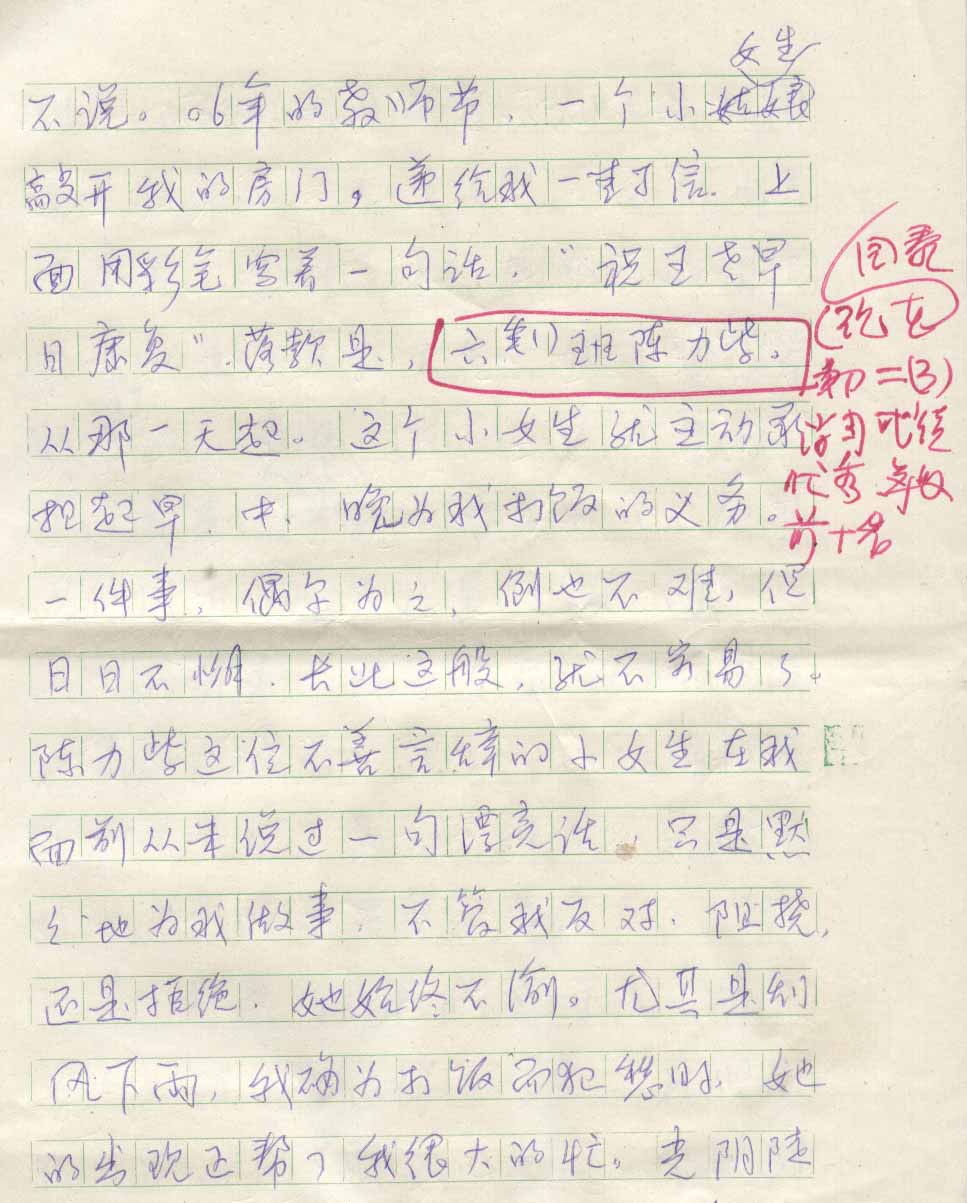 女生
不说。06年的教师节，一个小姑娘
敲开我的房门，递给我一封信．上
面用彩笔写着一句话．“祝王老早
日康复”．落款是，六(1)班陈力 。
从那一天起。这个小女生就主动承
担起早．中．晚为我打饭的义务。
一件事，偶尔为之，倒也不难，但
日日不懈．长此这般，就不容易了。
陈力 这位不善言辞的小女生在我
面前从未说过一句漂亮话．只是默
々地为我做事．不管我反对．阻挠，
还是拒绝．她始终不渝。尤其是刮
风下雨，我确为打饭而犯愁时．她
的出现还帮了我很大的忙。光阴陡
现在
初二(3)
学习成绩
优秀 年级
前十名